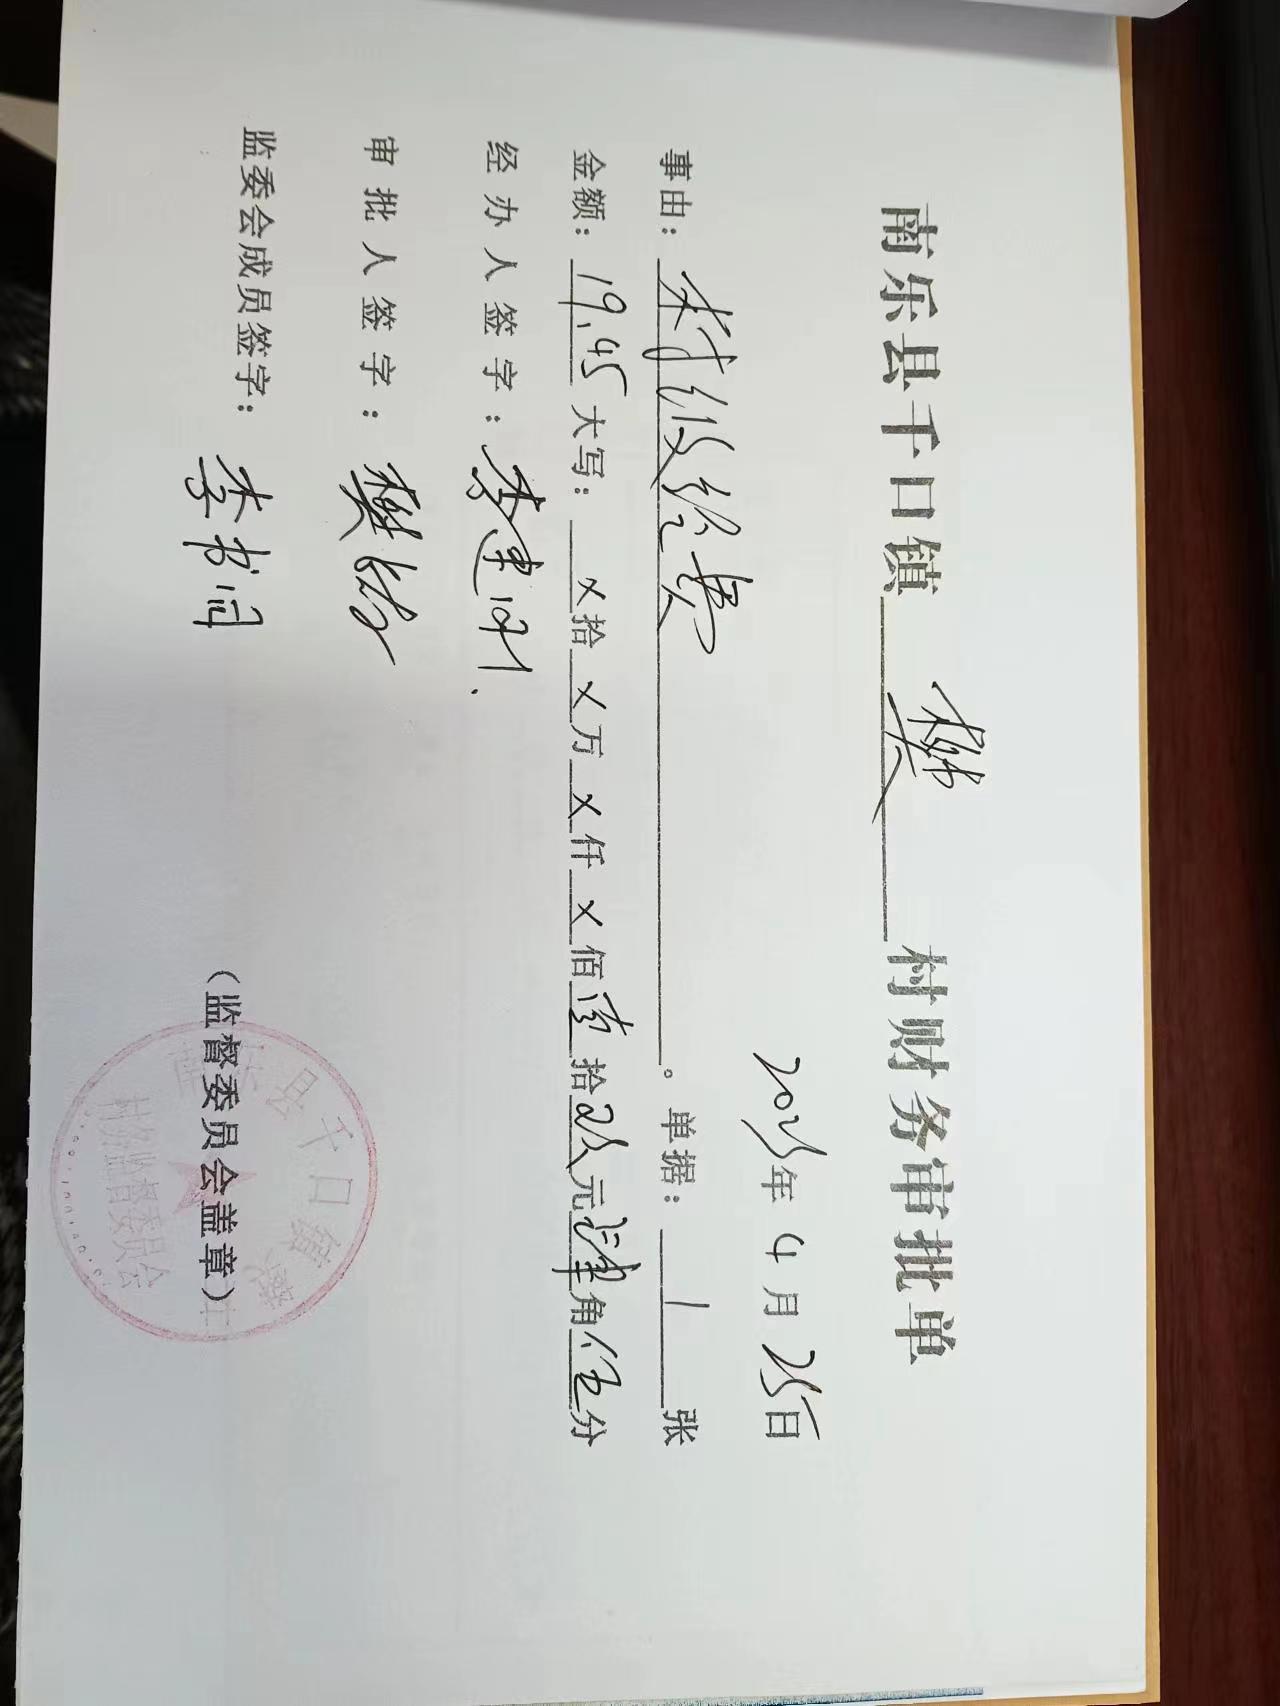 南乐县千口镇 樊 村财务审批单
2025年4月25日
事由：村级经费。单据：1张
金额：19.45 大写：×拾×万×仟×佰壹拾玖元肆角伍分
经办人签字：李建
审批人签字：樊
监委会成员签字：李书同
（监督委员会盖章）
县千口镇樊
村务监督委员会